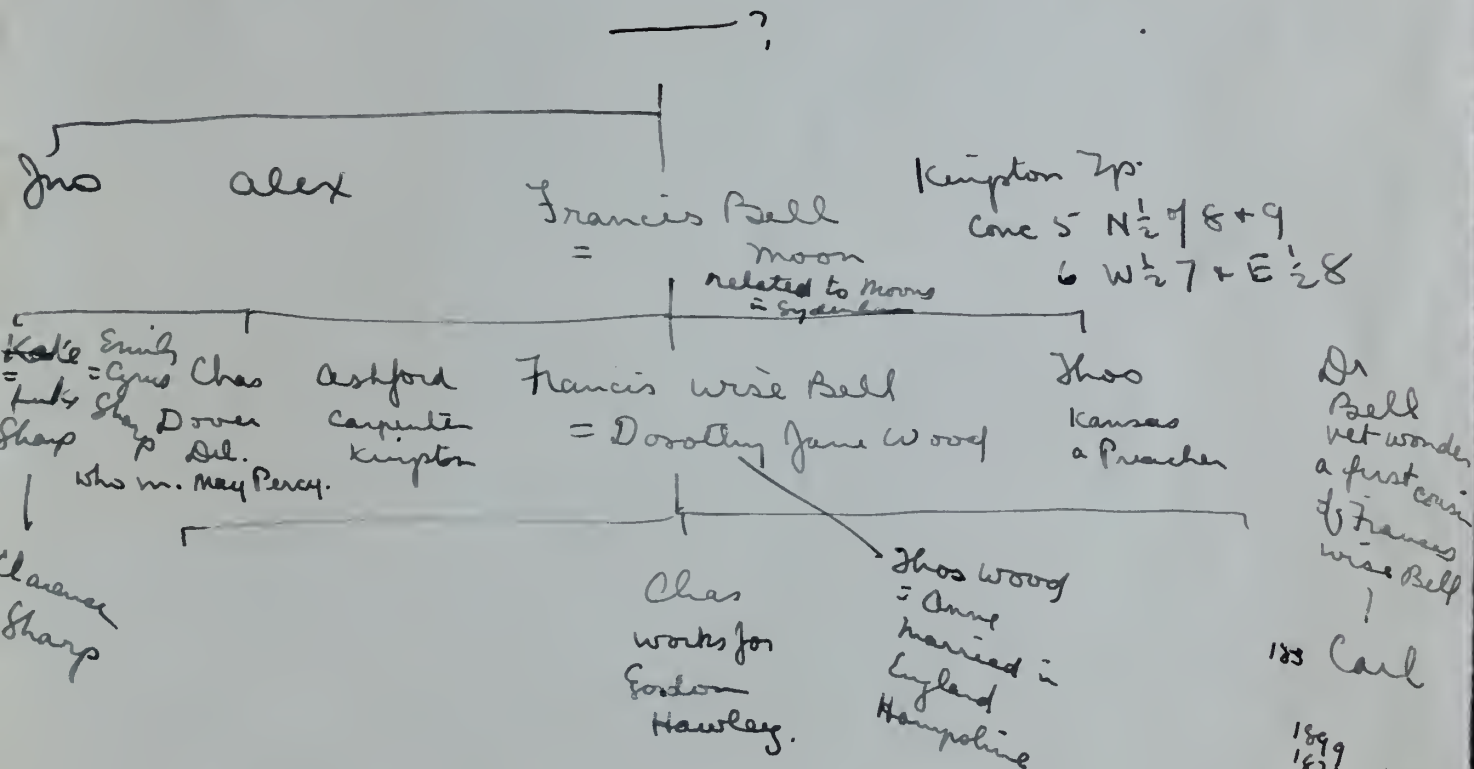 ?
Jno alex
Francis Bell
= Moon
related to Moons
in Sydenham
Kingston Tp.
Conc 5 N½ of 8 + 9
6 W½ 7 + E½ 8
Kate
=
Sharp
Emily
= Cyrus
Sharp
Chas
Dover
Del.
who m. May Percy.
Ashford
Carpenter
Kingston
Francis Wise Bell
= Dorothy Jane Wood
Thos
Kansas
a Preacher
Dr
Bell
vet wonder
a first cousin
of Frances
Wise Bell
Carl
Clarence
Sharp
Chas
works for
Gordon
Hawley.
Thos Wood
= Anne
Married in
England
Hampshire
183
1899